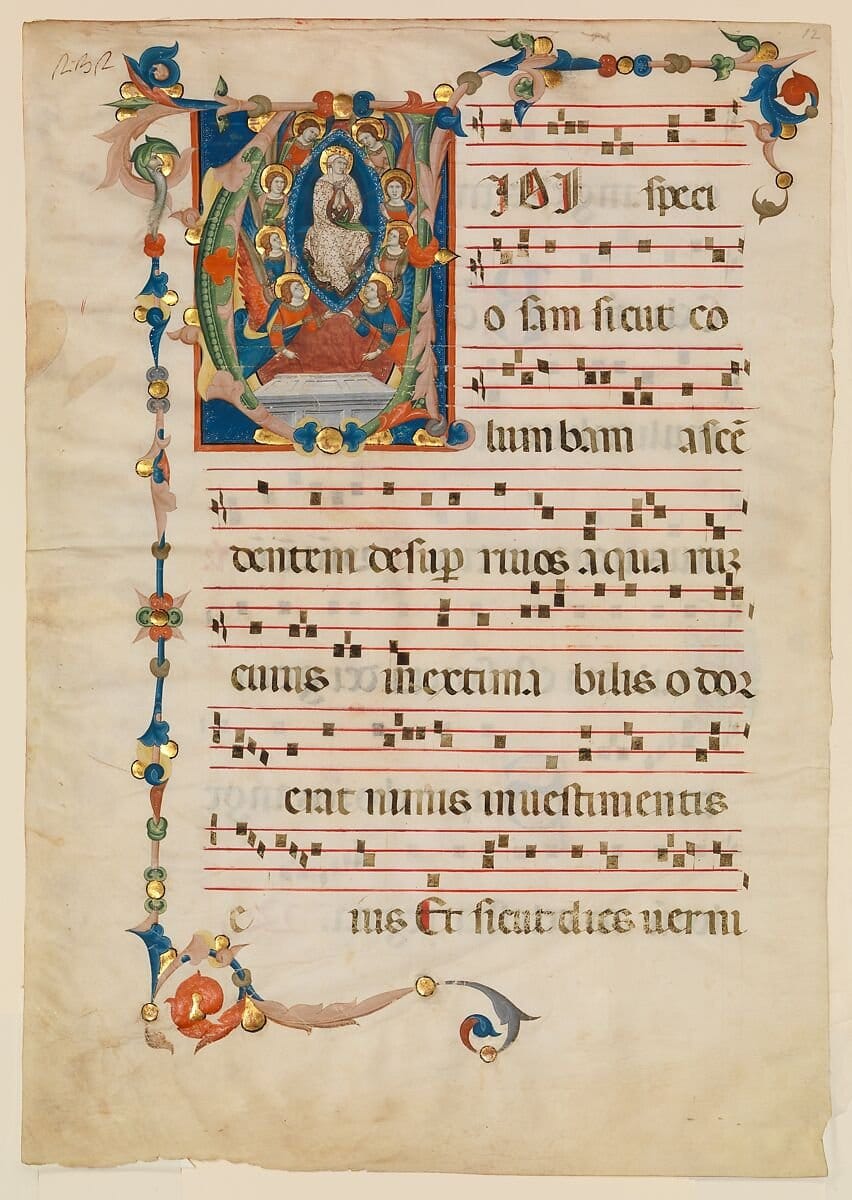 12
VIDI speci
o sam sicut co
lum bam ascē
dentem desuꝑ riuos aqua ruꝫ
cuius inextima bilis odoꝛ
erat nimis inuestimentis
e ius Et sicut dies uerni